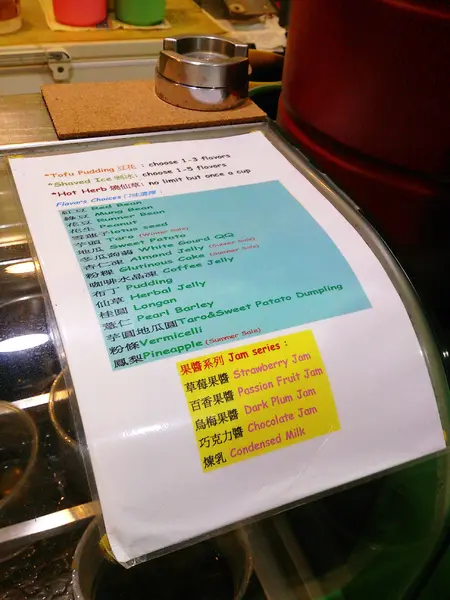 *Tofu Pudding 豆花 : choose 1-3 flavors
*Shaved Ice 剉冰: choose 1-5 flavors
*Hot Herb 燒仙草: no limit but once a cup
Flavors Choices 口味選擇 :
紅豆 Red Bean
綠豆 Mung Bean
花豆 Bunner Bean
花生 Peanut
雪蓮子lotus seed
芋頭 Taro (Winter Sale)
地瓜 Sweet Potato
冬瓜蒟蒻 White Gourd QQ
杏仁凍 Almond Jelly (Summer Sale)
粉粿 Glutinous Cake (Summer Sale)
咖啡水晶凍 Coffee Jelly
布丁 Pudding
仙草 Herbal Jelly
桂圓 Longan
薏仁 Pearl Barley
芋圓地瓜圓Taro&Sweet Potato Dumpling
粉條Vermicelli
鳳梨Pineapple (Summer Sale)
果醬系列 Jam series :
草莓果醬 Strawberry Jam
百香果醬 Passion Fruit Jam
烏梅果醬 Dark Plum Jam
巧克力醬 Chocolate Jam
煉乳 Condensed Milk